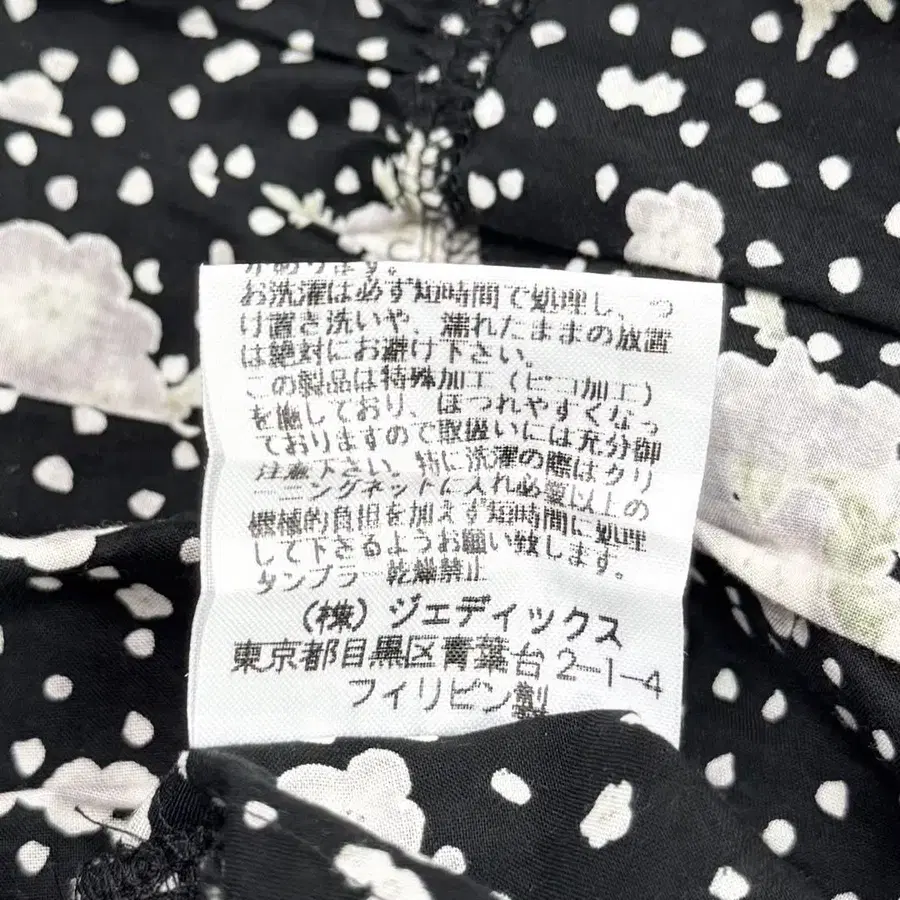 があります。
お洗濯は必ず短時間で処理し、つ
け置き洗いや、濡れたままの放置
は絶対にお避け下さい。
この製品は特殊加工（ピコ加工）
を施しており、ほつれやすくなっ
ておりますので取扱いには充分御
注意下さい。特に洗濯の際はクリ
ーニングネットに入れ必要以上の
機械的負担を加えず短時間に処理
して下さるようお願い致します。
タンブラー乾燥禁止
（株）ジェディックス
東京都目黒区青葉台2-1-4
フィリピン製